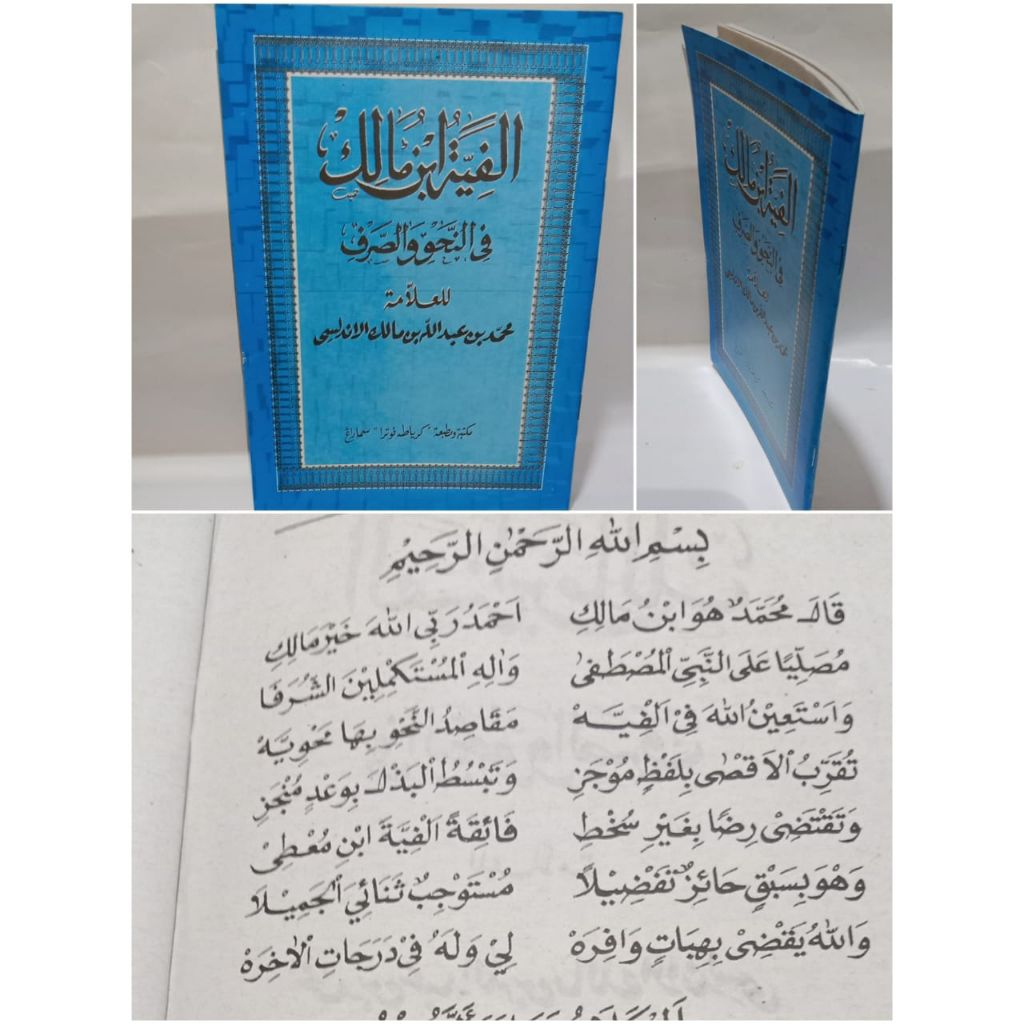 الفية ابن مالك
فى النحو والصرف
للعلامة
محمد بن عبد الله بن مالك الاندلسى
مكتبة ومطبعة "كرياطه فوترا" سماراغ
الفية ابن مالك
فى النحو والصرف
للعلامة
محمد بن عبد الله بن مالك الاندلسى
بِسْمِ اللهِ الرَّحْمٰنِ الرَّحِيْمِ
قَالَ مُحَمَّدٌ هُوَ ابْنُ مَالِكِ اَحْمَدُ رَبِّى اللهَ خَيْرَ مَالِكِ
مُصَلِّيًا عَلَى النَّبِىِّ الْمُصْطَفٰى وَاٰلِهِ الْمُسْتَكْمِلِيْنَ الشُّرَفَا
وَاَسْتَعِيْنُ اللهَ فِىْ اَلْفِيَّهْ مَقَاصِدُ النَّحْوِ بِهَا مَحْوِيَّهْ
تُقَرِّبُ الْاَقْصٰى بِلَفْظٍ مُوْجَزِ وَتَبْسُطُ الْبَذْلَ بِوَعْدٍ مُنْجَزِ
وَتَقْتَضِىْ رِضًا بِغَيْرِ سُخْطِ فَائِقَةً اَلْفِيَّةَ ابْنِ مُعْطِىْ
وَهْوَ بِسَبْقٍ حَائِزٌ تَفْضِيْلًا مُسْتَوْجِبٌ ثَنَائِيَ الْجَمِيْلَا
وَاللهُ يَقْضِىْ بِهِبَاتٍ وَافِرَهْ لِيْ وَلَهُ فِىْ دَرَجَاتِ الْاٰخِرَهْ